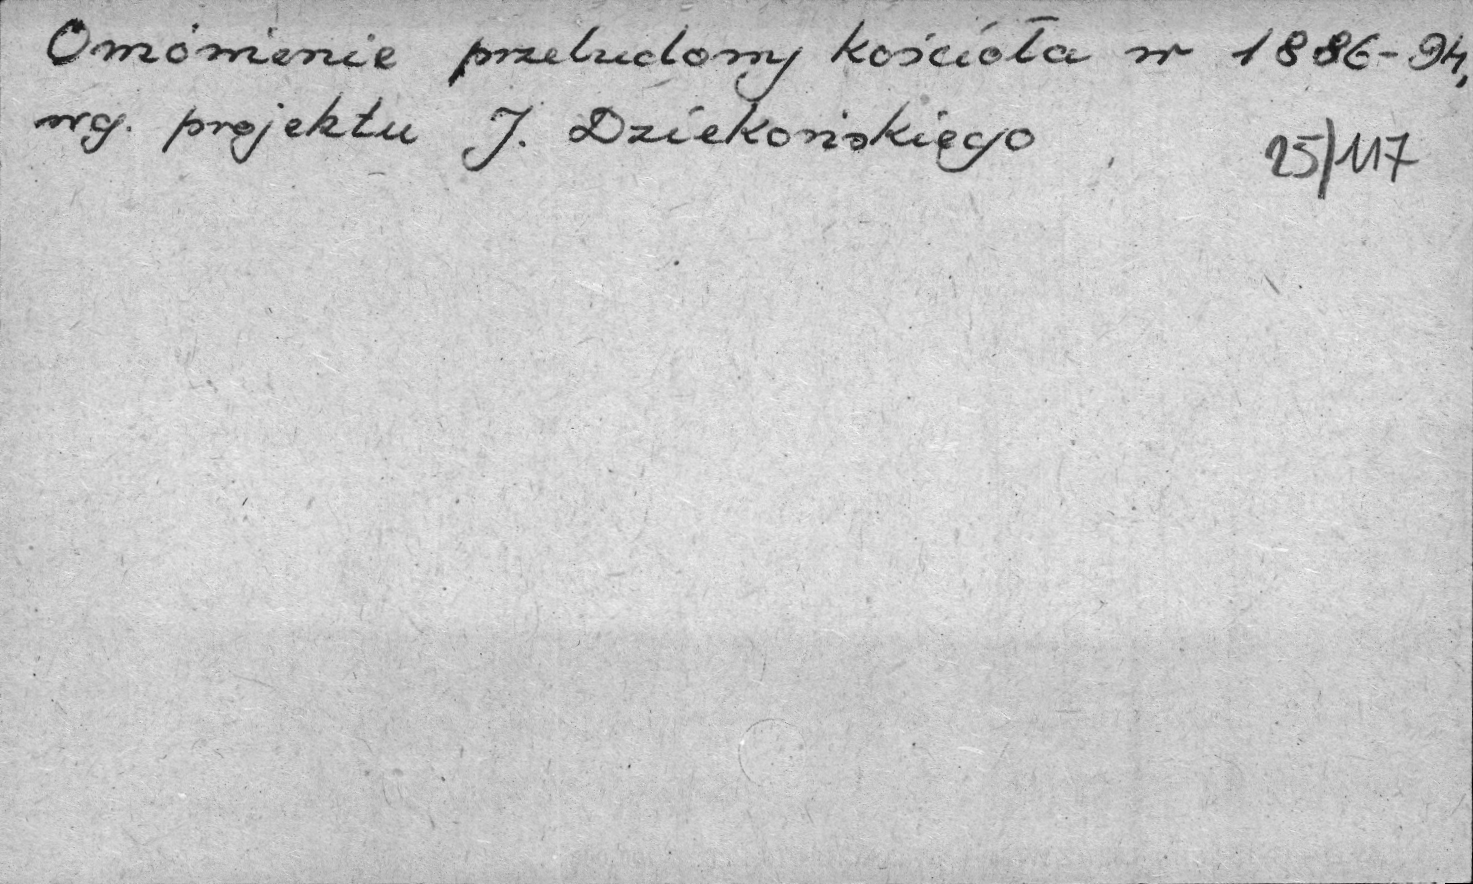 Omówienie przebudowy kościoła w 1886-94,
wg. projektu J. Dziekońskiego
25/117